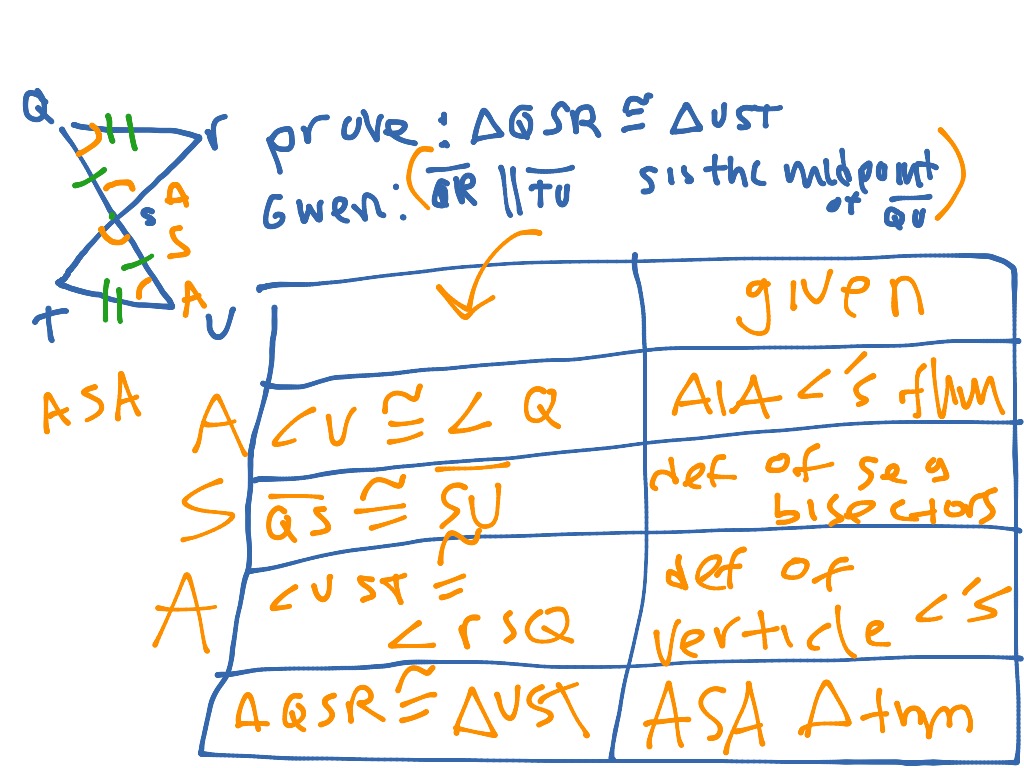 Q
r
prove: △QSR ≅ △UST
Given: (QR || TU S is the midpoint of QU)
S
A
S
A
T
U
given
ASA
A
<U ≅ <Q
AIA <'s thm
S
QS ≅ SU
def of seg bisectors
A
<UST ≅
<rSQ
def of
verticle <'s
△QSR ≅ △UST
ASA △ thm